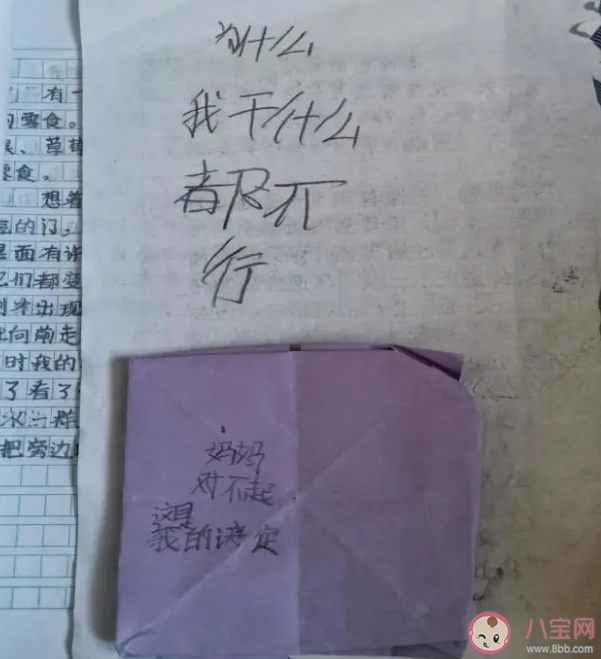 有一
零食。
、草
食。
想着
的门。
里面有许
们都变
出现
向前走
时我的
了看了
把旁边
为什么
我干什么
都不
行
妈妈
对不起
这是
我的定
八宝网
www.8bb.com